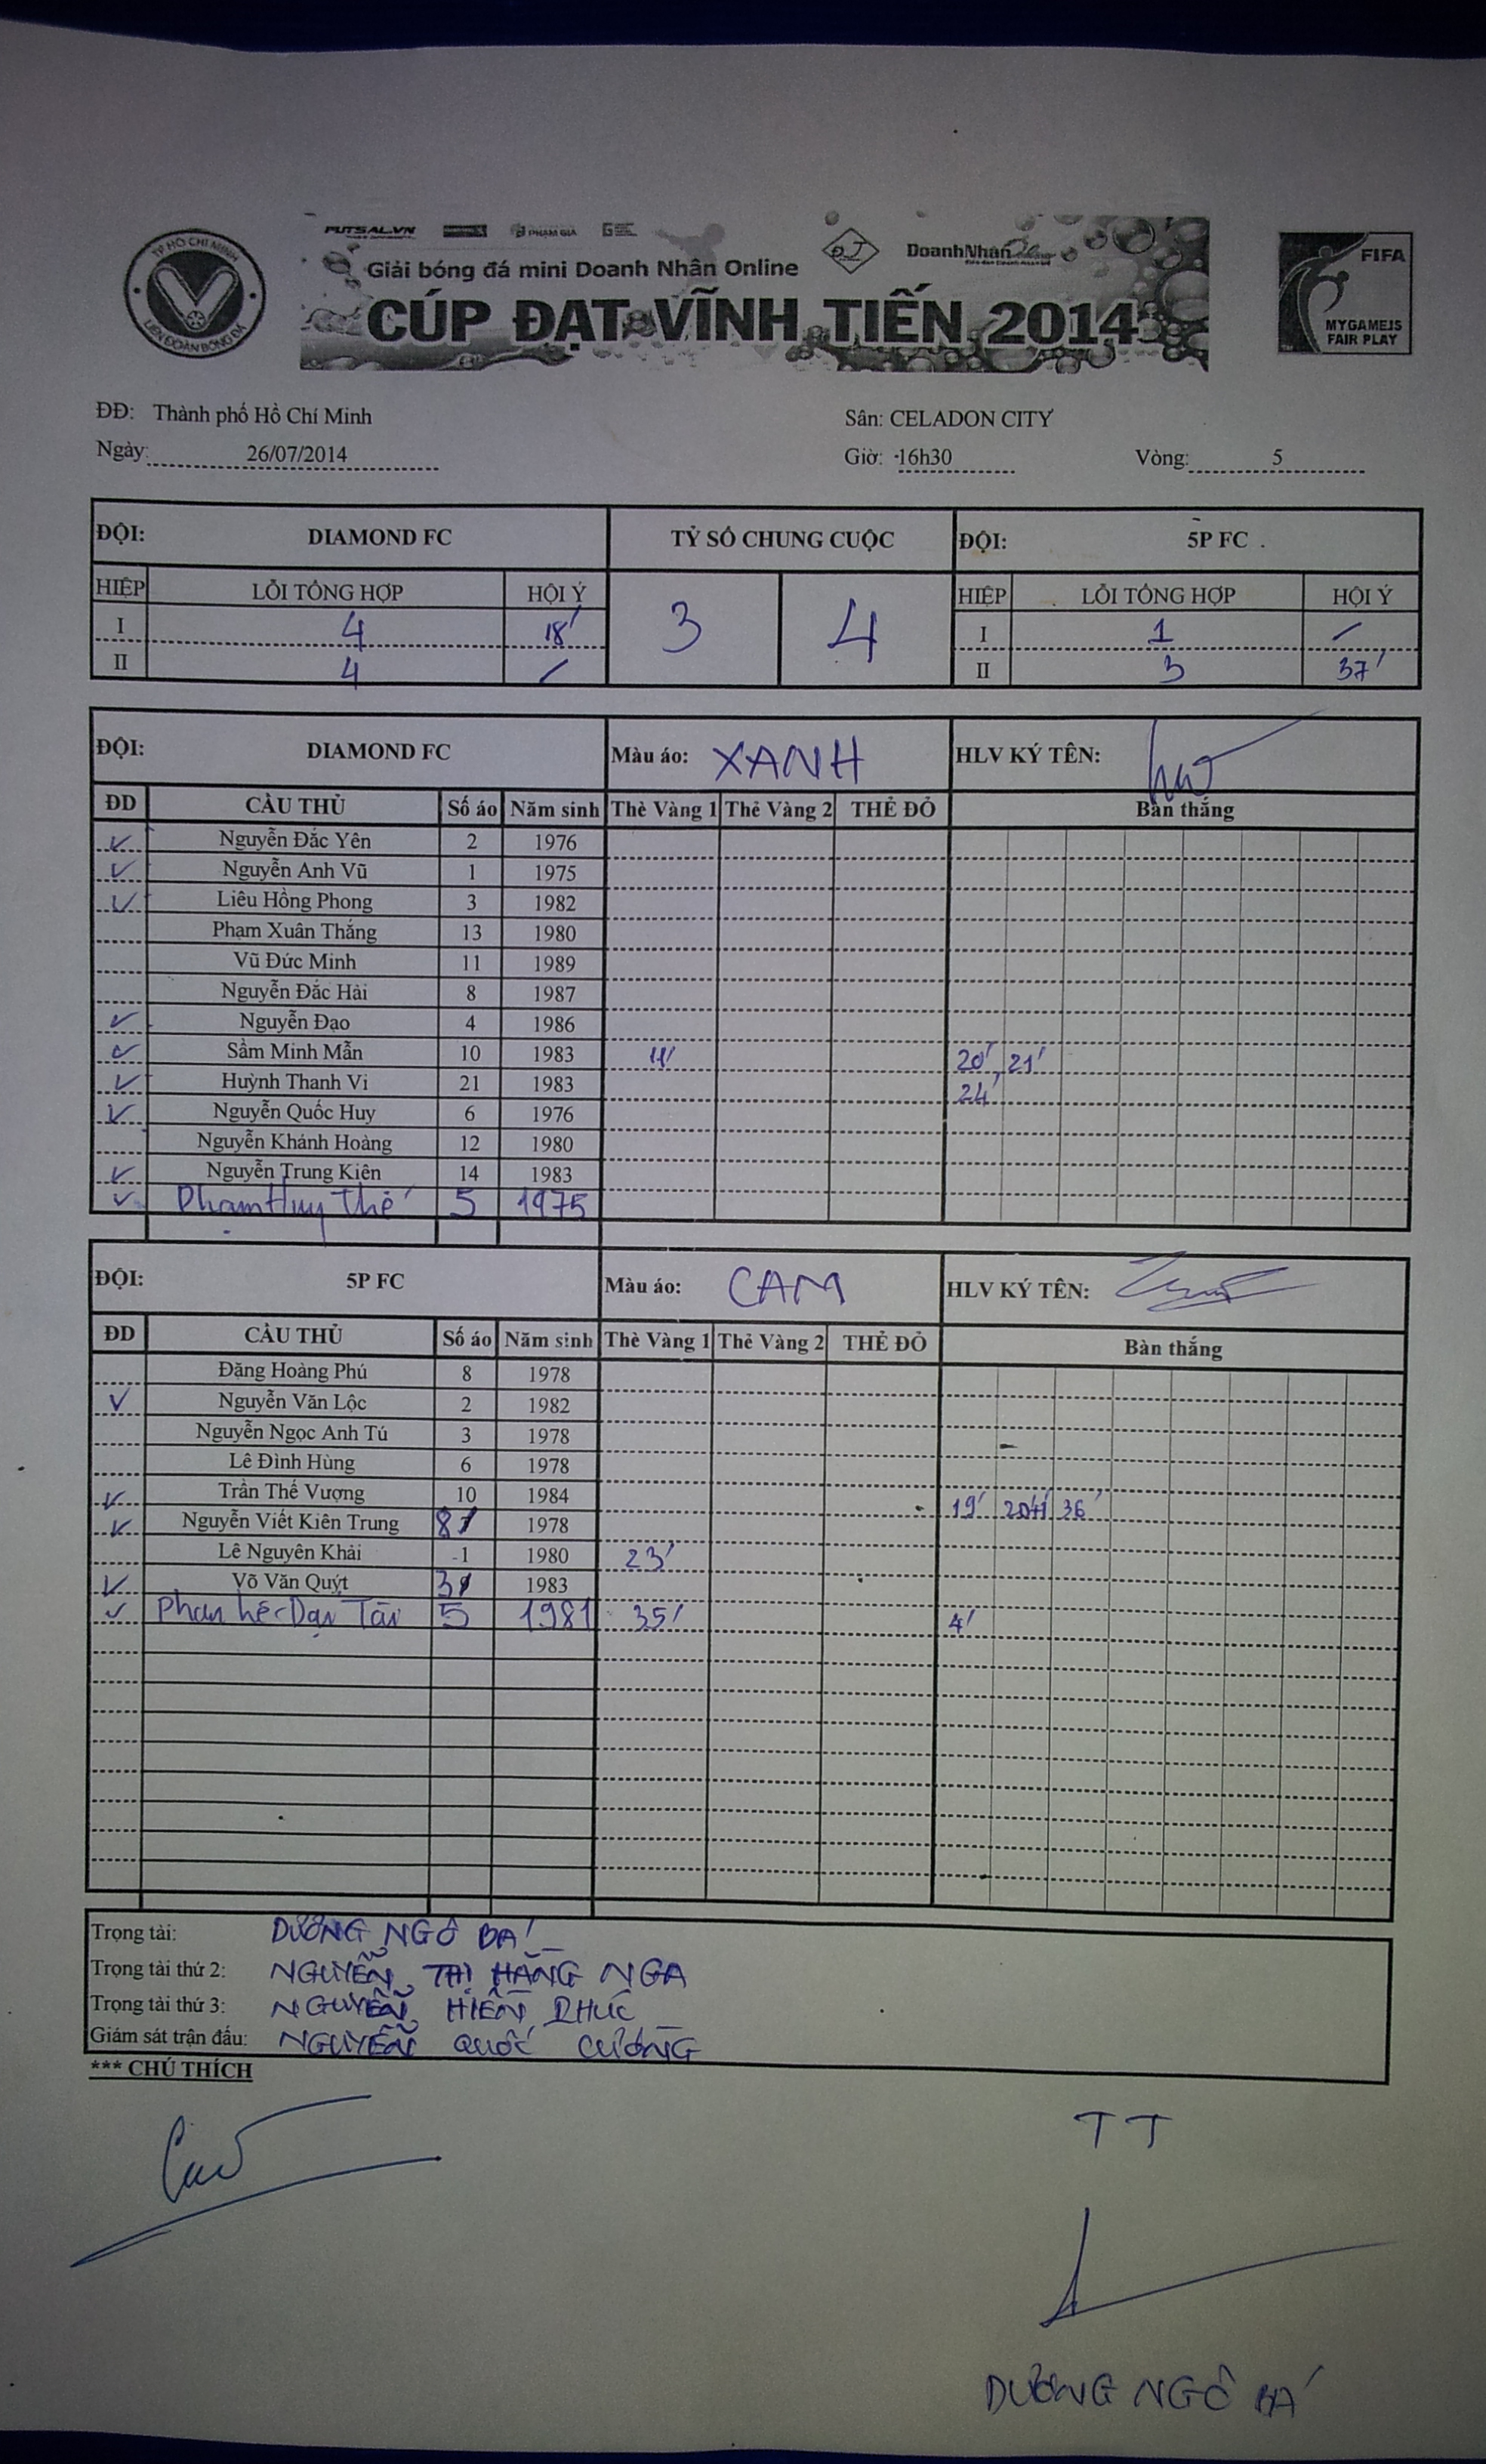 FUTSAL.VN PHAM GIA
Giải bóng đá mini Doanh Nhân Online
DoanhNhân
CÚP ĐẠT VĨNH TIẾN 2014
TP HỒ CHÍ MINH
LIÊN ĐOÀN BÓNG ĐÁ
FIFA
MY GAME IS
FAIR PLAY
ĐĐ: Thành phố Hồ Chí Minh Sân: CELADON CITY
Ngày: 26/07/2014 Giờ: 16h30 Vòng: 5
ĐỘI: DIAMOND FC TỶ SỐ CHUNG CUỘC ĐỘI: 5P FC
HIỆP LỖI TỔNG HỢP HỘI Ý 3 4 HIỆP LỖI TỔNG HỢP HỘI Ý
I 4 18' I 1 /
II 4 / II 3 37'
ĐỘI: DIAMOND FC Màu áo: XANH HLV KÝ TÊN:
ĐD CẦU THỦ Số áo Năm sinh Thẻ Vàng 1 Thẻ Vàng 2 THẺ ĐỎ Bàn thắng
✓ Nguyễn Đắc Yên 2 1976
✓ Nguyễn Anh Vũ 1 1975
✓ Liêu Hồng Phong 3 1982
Phạm Xuân Thắng 13 1980
Vũ Đức Minh 11 1989
Nguyễn Đắc Hải 8 1987
✓ Nguyễn Đạo 4 1986
✓ Sầm Minh Mẫn 10 1983 20' 21'
✓ Huỳnh Thanh Vi 21 1983 24'
✓ Nguyễn Quốc Huy 6 1976
Nguyễn Khánh Hoàng 12 1980
✓ Nguyễn Trung Kiên 14 1983
✓ Phạm Huy Thế 5 1975
ĐỘI: 5P FC Màu áo: CAM HLV KÝ TÊN:
ĐD CẦU THỦ Số áo Năm sinh Thẻ Vàng 1 Thẻ Vàng 2 THẺ ĐỎ Bàn thắng
Đặng Hoàng Phú 8 1978
✓ Nguyễn Văn Lộc 2 1982
Nguyễn Ngọc Anh Tú 3 1978
Lê Đình Hùng 6 1978
✓ Trần Thế Vượng 10 1984 19' 36'
✓ Nguyễn Viết Kiên Trung 1978
Lê Nguyên Khải 1 1980 23'
✓ Võ Văn Quýt 1983
✓ Phan Tài 5 1981 35' 4'
Trọng tài: DƯƠNG NGÔ BÁ
Trọng tài thứ 2: NGUYỄN THỊ HẰNG NGA
Trọng tài thứ 3: NGUYỄN HIỀN PHÚC
Giám sát trận đấu: NGUYỄN QUỐC CƯỜNG
*** CHÚ THÍCH
TT
DƯƠNG NGÔ BÁ